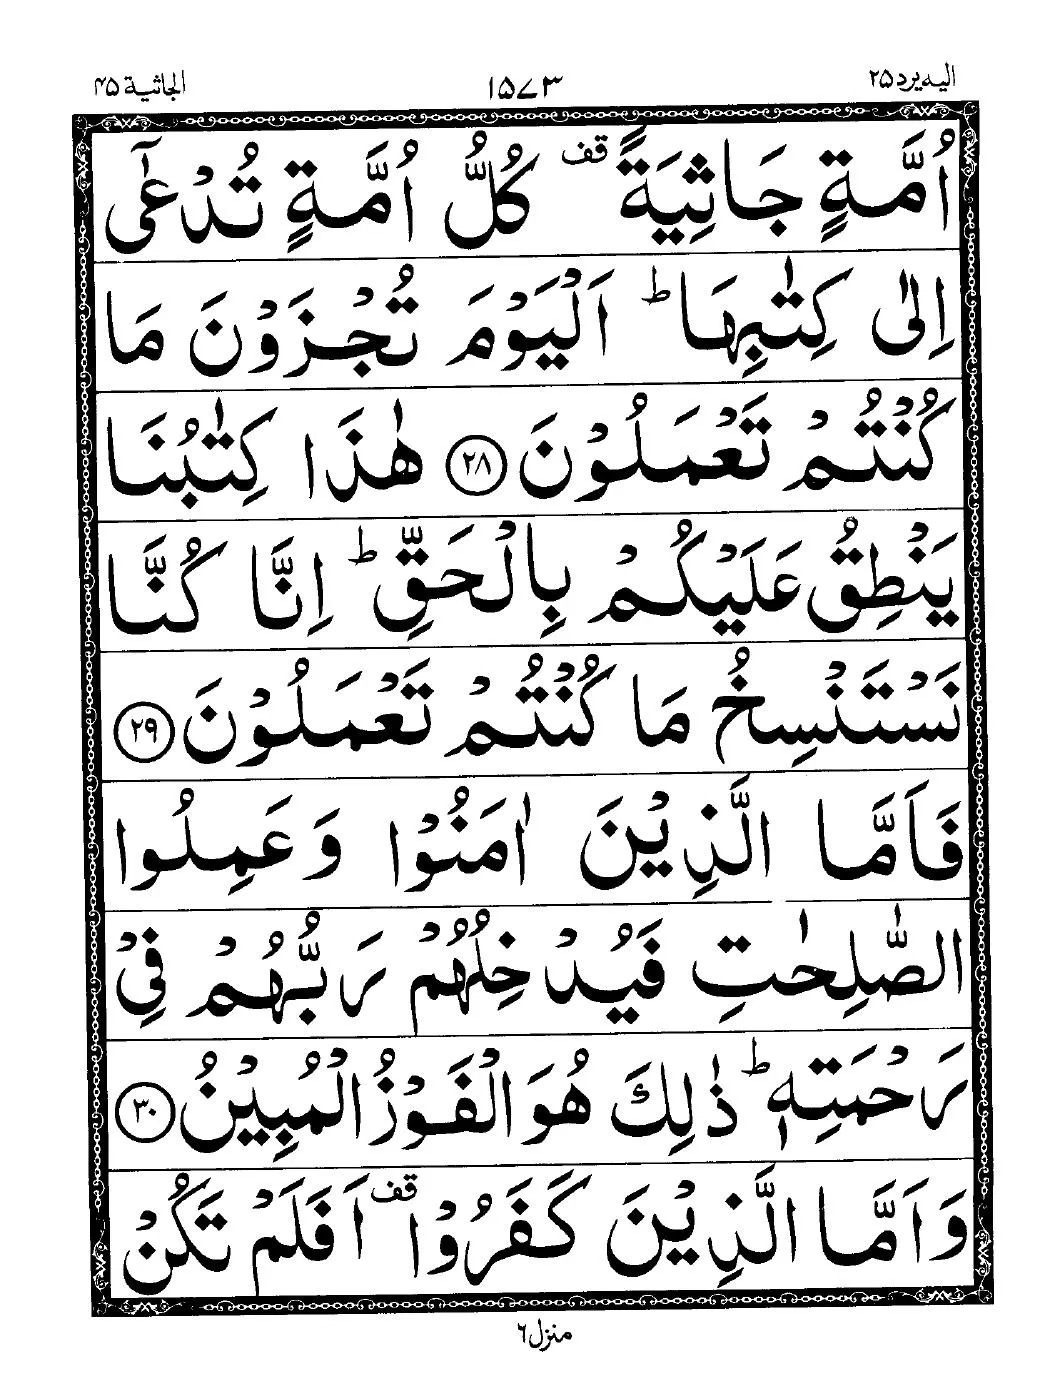 الیه یرد ۲۵
۱۵۷۳
الجاثیة ۴۵
اُمَّةٍ جَاثِيَةً ۫ قف كُلُّ اُمَّةٍ تُدْعٰۤى
اِلٰى كِتٰبِهَا ؕ اَلْيَوْمَ تُجْزَوْنَ مَا
كُنْتُمْ تَعْمَلُوْنَ ۲۸ هٰذَا كِتٰبُنَا
يَنْطِقُ عَلَيْكُمْ بِالْحَقِّ ؕ اِنَّا كُنَّا
نَسْتَنْسِخُ مَا كُنْتُمْ تَعْمَلُوْنَ ۲۹
فَاَمَّا الَّذِيْنَ اٰمَنُوْا وَ عَمِلُوا
الصّٰلِحٰتِ فَيُدْخِلُهُمْ رَبُّهُمْ فِيْ
رَحْمَتِهٖ ؕ ذٰلِكَ هُوَ الْفَوْزُ الْمُبِيْنُ ۳۰
وَ اَمَّا الَّذِيْنَ كَفَرُوْا قف اَفَلَمْ تَكُنْ
منزل ۶